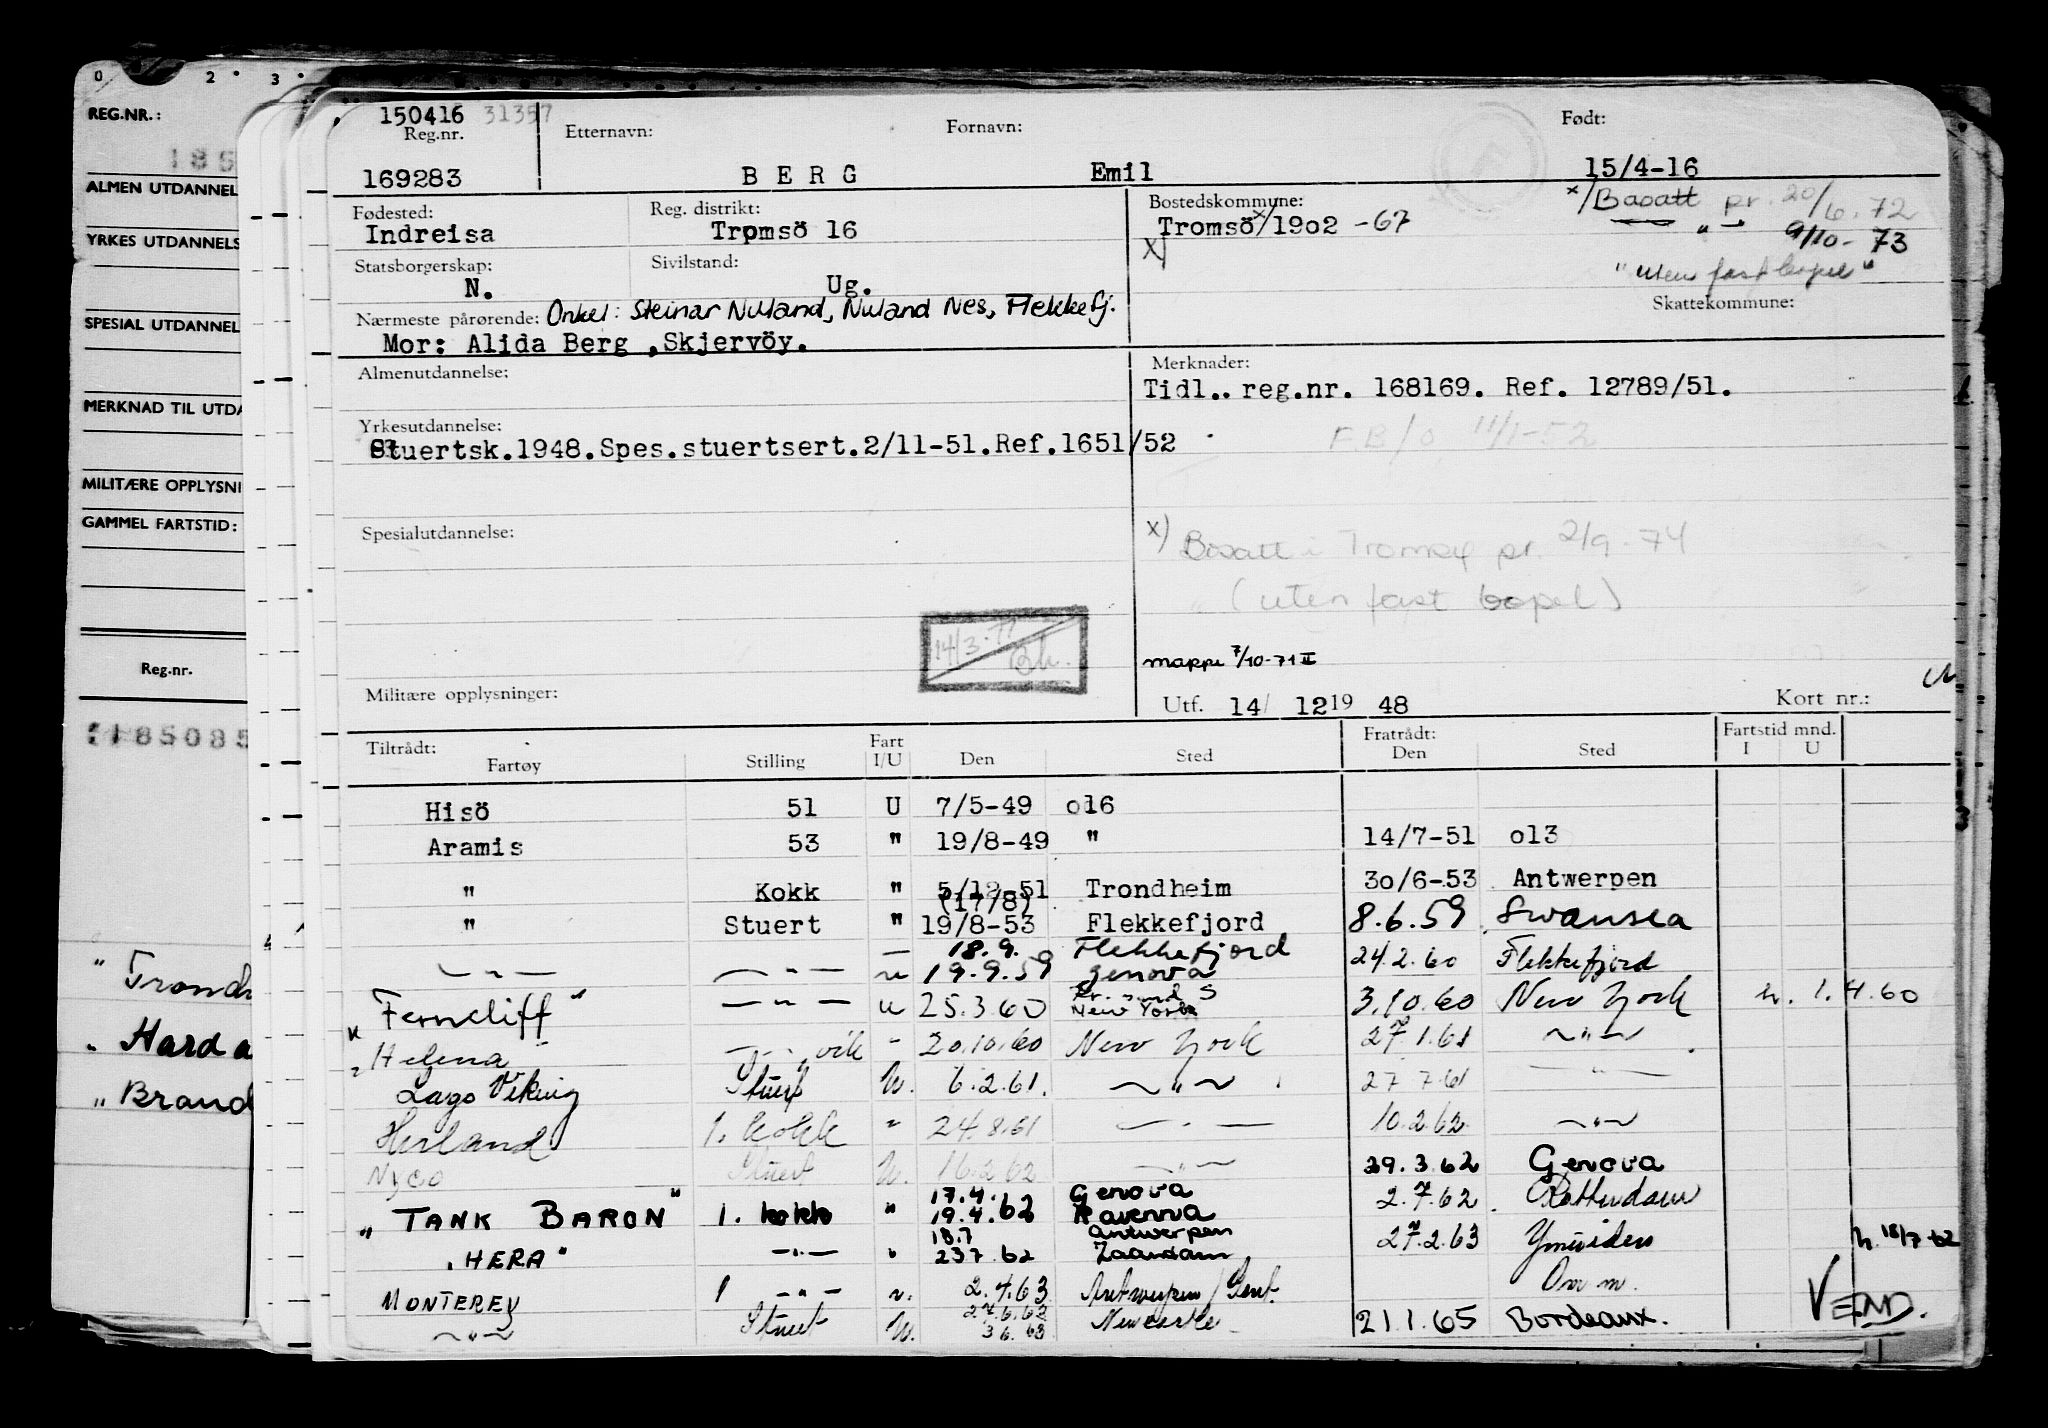 0 2 3
REG.NR.:
185
ALMEN UTDANNEL
YRKES UTDANNELS
SPESIAL UTDANNEL
MERKNAD TIL UTDA
MILITÆRE OPPLYSNI
GAMMEL FARTSTID:
Reg.nr.
185085
" Trond
Hard a
" Brand
150416 31357
Reg.nr. Etternavn: Fornavn: Født:
169283 BERG Emil 15/4-16
Fødested: Reg. distrikt: Bostedskommune: x/ Bosatt pr. 20/6.72
Indreisa Tromsö 16 Tromsö x/1902 -67 " 9/10-73
x)
Statsborgerskap: Sivilstand: "uten fast bopel"
N. Ug. Skattekommune:
Nærmeste pårørende: Onkel: Steinar Nuland, Nuland Nes, Flekkefj.
Mor: Alida Berg ,Skjervöy.
Almenutdannelse: Merknader:
Tidl.. reg.nr. 168169. Ref. 12789/51.
Yrkesutdannelse: F.B/O 11/1-52
Stuertsk.1948.Spes.stuertsert.2/11-51.Ref.1651/52
Spesialutdannelse: x) Bosatt i Tromsø pr. 2/9-74
(uten fast bopel)
14/3-77
mappe 7/10-71 II
Militære opplysninger: Utf. 14/ 12 19 48 Kort nr.:
Tiltrådt: Fart Fratrådt: Fartstid mnd.
Fartøy Stilling I/U Den Sted Den Sted I U
Hisö 51 U 7/5-49 o16
Aramis 53 " 19/8-49 " 14/7-51 o13
" Kokk " 5/12-51 Trondheim 30/6-53 Antwerpen
(17/8)
" Stuert " 19/8-53 Flekkefjord 8.6.59 Swansea
18.9. Flekkefjord
— " — — " — u 19.9.59 Genova 24.2.60 Flekkefjord
Ferncliff" — " — u 25.3.60 New York 3.10.60 New York h. 1.4.60
Helena " 20.10.60 New York 27.1.61 — " —
Lago Viking Stuert U. 6.2.61. — " — 27 7.61 — " —
Herland 1. kokk " 24.8.61 — " — 10.2.62 — " —
Nyco Stuert U. 16.2.62 — " — 29.3.62 Genova
17.4. Genova
"TANK BARON" 1. kokk " 19.4.62 Ravenna 2.7.62 Rotterdam
18.7 Antwerpen
"HERA" — " — " 237.62 Zaandam 27.2.63 Ymuiden h. 18/7-62
MONTEREY 1 — " — 2.4.63 Antwerpen/Gent. Om m.
— " — Stuert U. 3 6. 63 Newcastle 21.1.65 Bordeaux.
VEND.